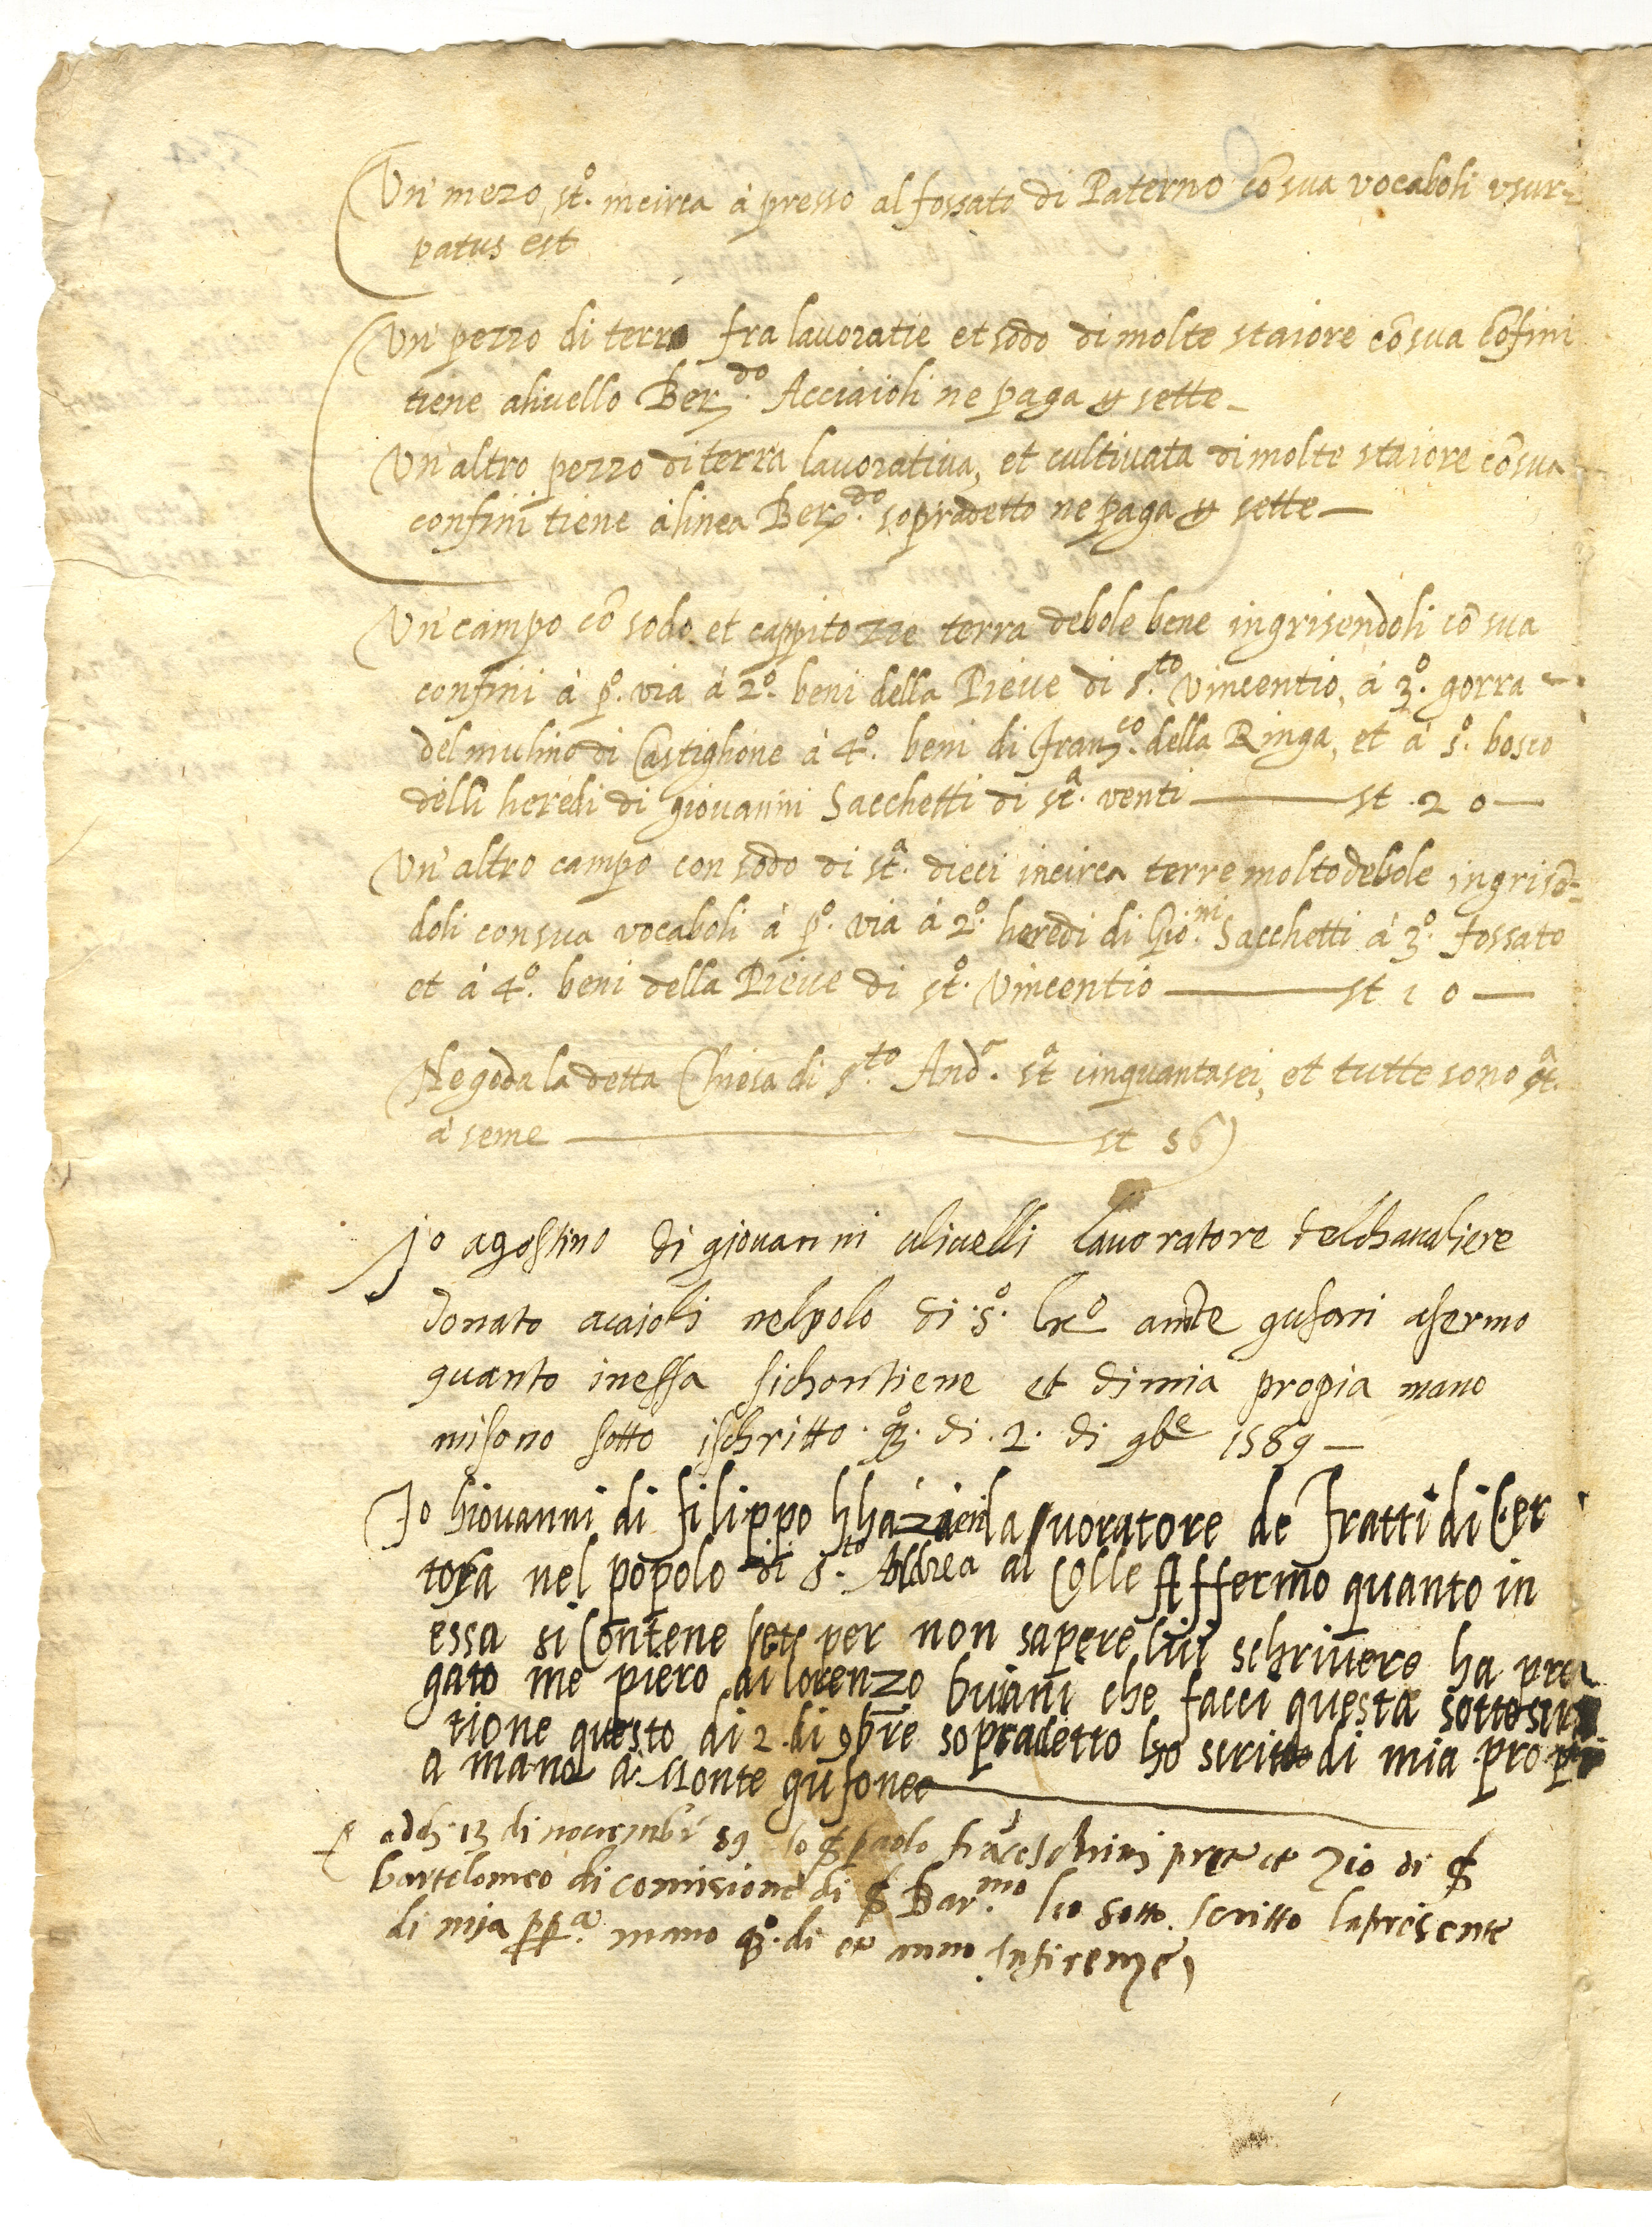 Un mezo st.º incirca à presso al fossato di Paterno cõ sua vocaboli usur=
patus est
Un pezzo di terra fra lavoratie et sodo di molte staiore cõ sua cõfini
tiene alivello Ber.do Acciaioli ne paga sette_
Un altro pezzo di terra lavorativa, et cultivata di molte staiore cõ sua
confini tiene à linea Ber.do sopradetto ne paga sette—
Un campo cõ sodo et cappitozze terra debole bene ingrisendoli cõ sua
confini à p.º via à 2.º beni della Pieve di s.to Vincentio, à 3.º gorra
del mulino di Castiglione à 4.º beni di Fran.co della Ringa, et à 5.º bosco
delli heredi di giovanni Sacchetti di st.a venti — st. 20 —
Un altro campo con sodo di st.a dieci incirca terre molto debole ingrisẽ=
doli con sua vocaboli à p.º via à 2.º heredi di Gio.ni Sacchetti à 3.º fossato
et à 4.º beni della Pieve di st.º Vincentio — st 10 —
Ne goda la detta Chiesa di s.to And.a st.a cinquantasei, et tutte sono st.a
à seme — st 56)
Io agostino di giovanni ulivelli lavoratore delchavaliere
donato acaioli nelpolo di s.º lr.º amōte gufoni afermo
quanto inessa sichontiene et dimia propia mano
misono sotto ischritto q.º di 2. di 9be 1589 —
Io hiovanni di filippo la voratore de Fratti di Cer
tosa nel popolo di S.to Andrea al Colle Affermo quanto in
essa si Contene per non sapere lui schrivere ha pre
gato me piero di lorenzo buiani che facci questa sottoscri
tione questo di 2 di 9bre sopradetto ho scritto di mia propi
a mano a Monte gufone
adi 13 di novembr 89 Io paolo franceschini prete et zio di
bartolomeo di comisione di Bar.mo ho sotto scritto lapresente
di mia pp.a mano q.º di et anno In firenze